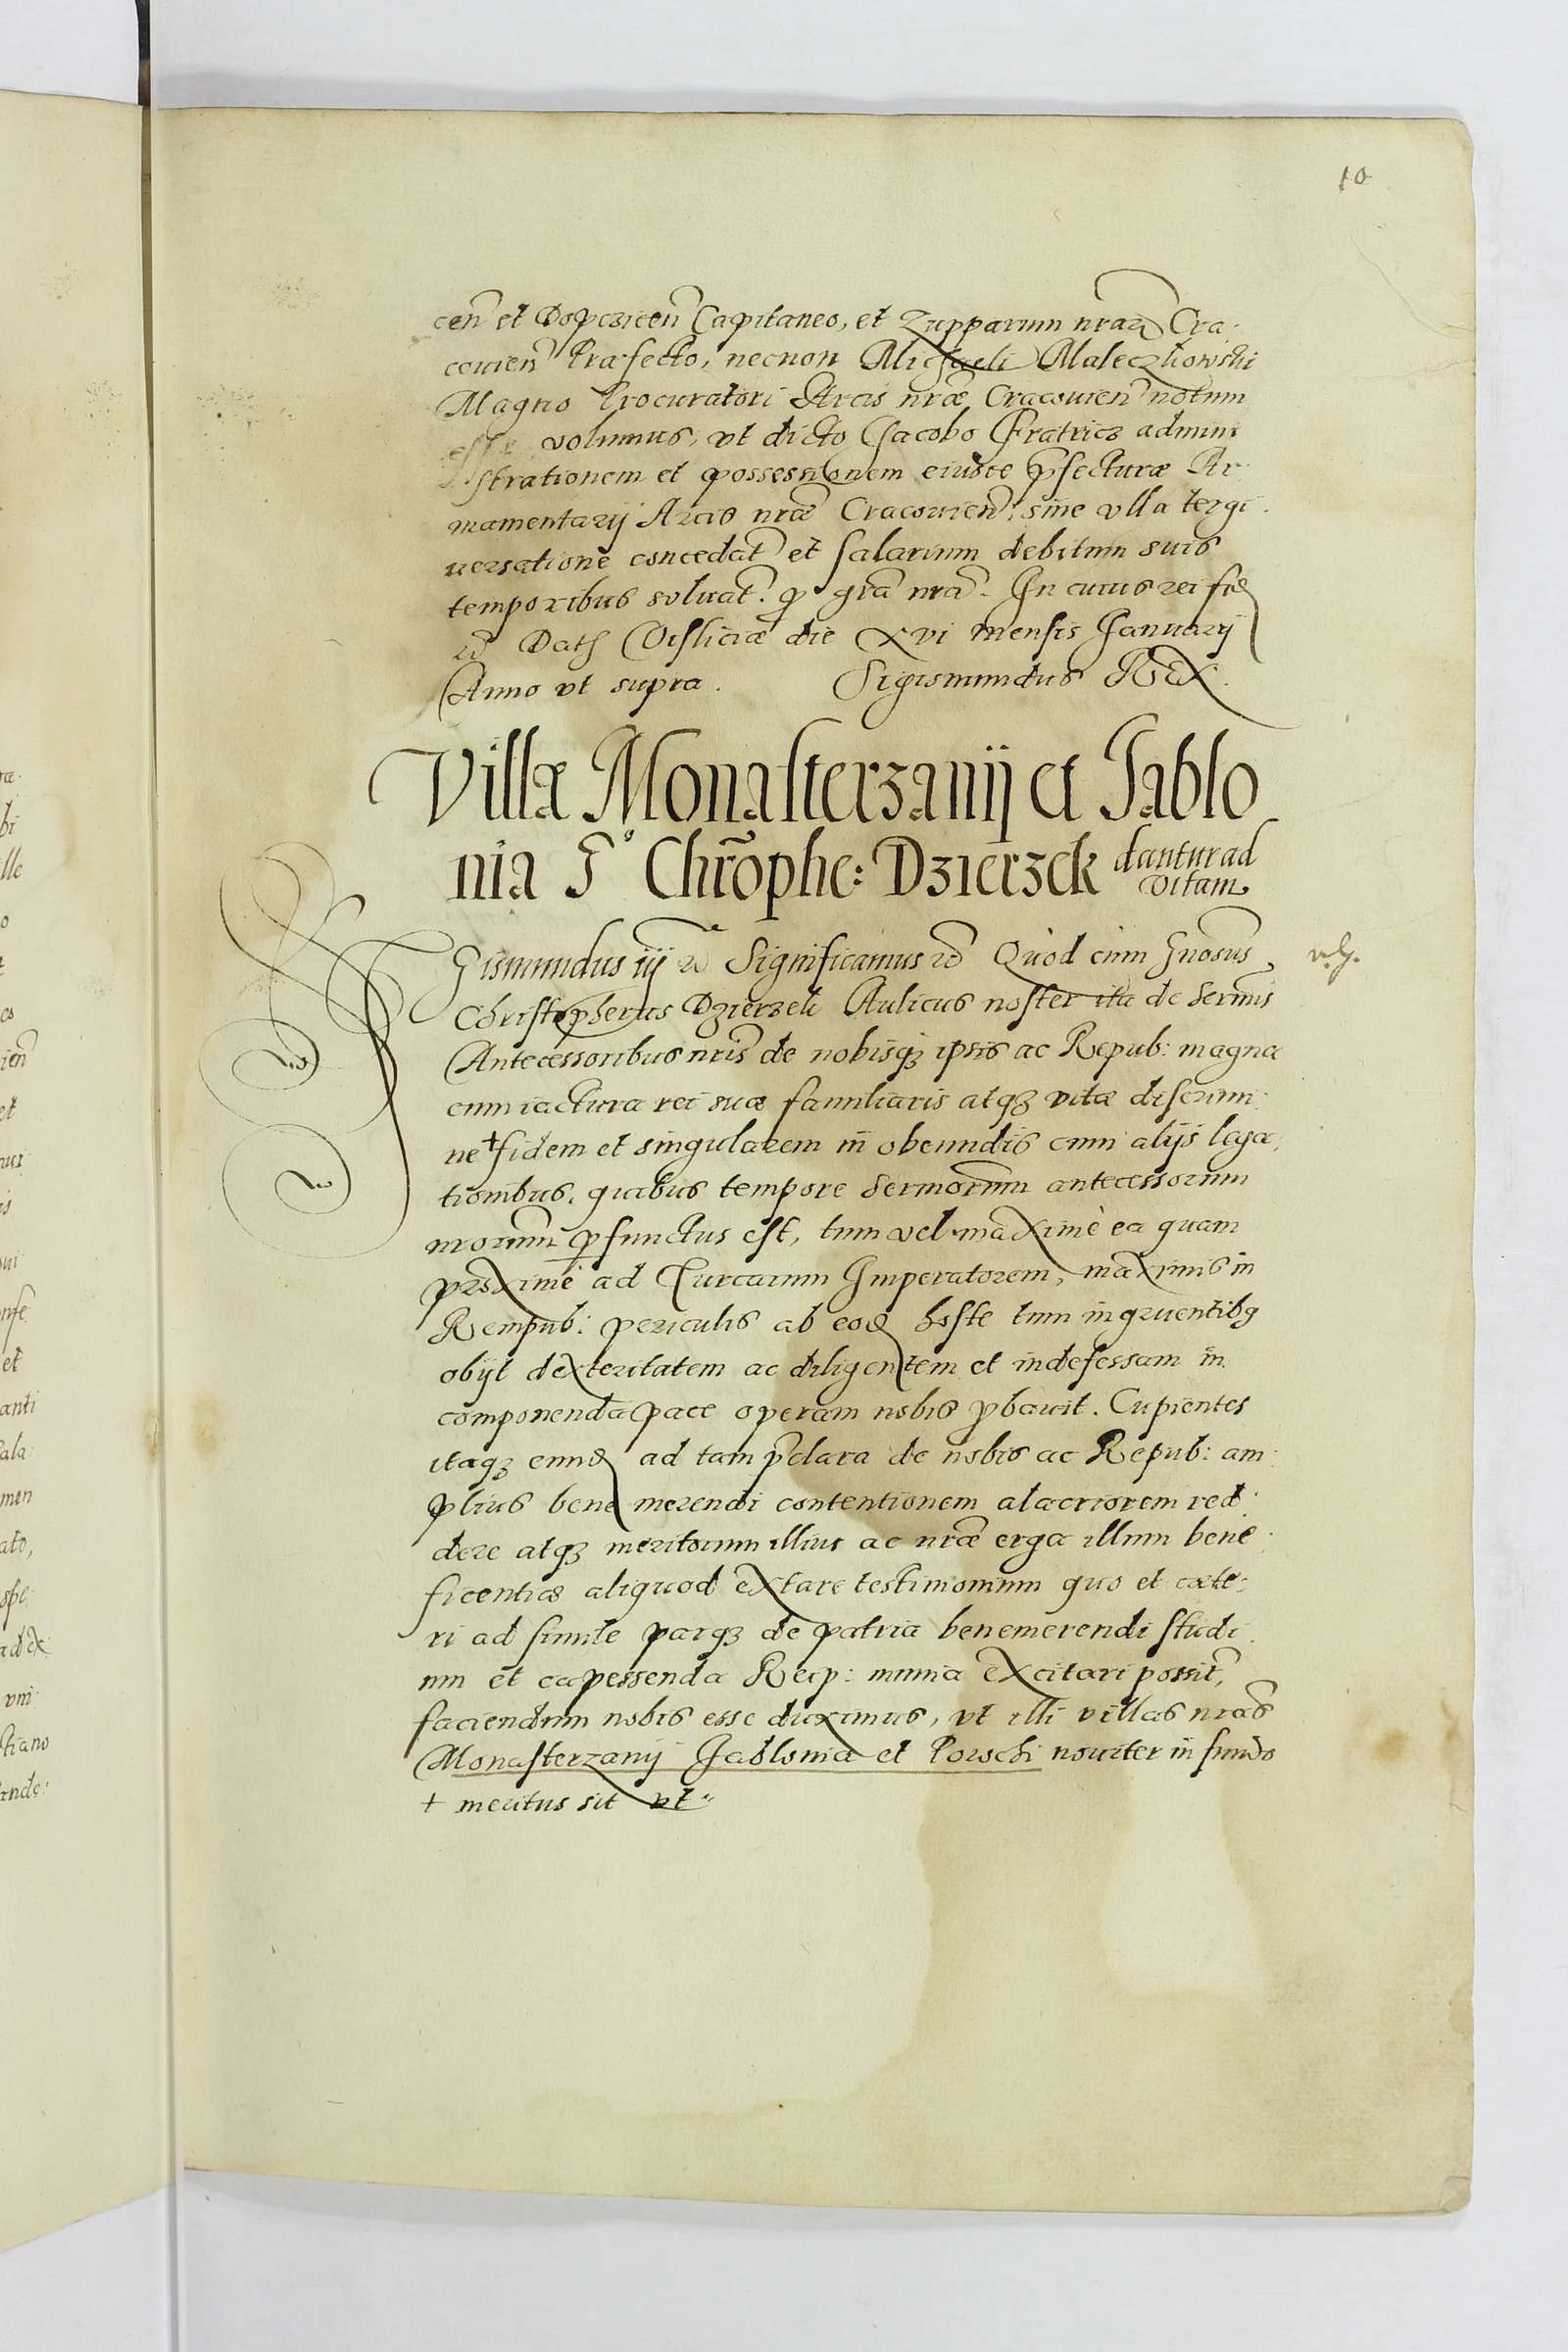 10
cen̄ et Dopczicen̄ Capitaneo, et Zupparum nrār̄ Cra-
couien̄ Præfecto, necnon Michaeli Maleczkowski
Magno Procuratori Arcis nr̄æ Cracouien̄ notum
esse volumus, vt dicto Jacobo Fraticz admini
strationem et possessionem eiusce p̄fecturæ Ar-
mamentarij Arcis nr̄æ Cracouien̄, sine vlla tergi-
uersatione concedat̄ et salarium debitum suis
temporibus soluat̄. p gr̄a nr̄a. In cuius rei fid
Dat Visliciæ die xvi mensis Januarij
Anno vt supra. Sigismundus Rex.
Villæ Monasterzanij et Jablo
nia G° Chrōphe: Dzierzek dantur ad
vitam
Sigismundus iij Significamus Quod cum Gnosus
Christopherus Dzierzek Aulicus noster ita de Sermis
Antecessoribus nr̄is de nobisq ipsis ac Repub: magna
cum iactura rei suæ familiaris atq vitæ discrimi-
ne + fidem et singularem in obeundis cum alijs lega-
tionibus, quibus tempore Sermorum antecessorum
nrorum pfunctus est, tum vel maximè ea quam
proximè ad Turcarum Imperatorem, maximis in
Rempub: periculis ab eod hoste tum ingruentibq
obijt dexteritatem ac diligentem et indefessam in
componenda pace operam nobis pbauit. Cupientes
itaq eund ad tam p̄clara de nobis ac Repub: am-
plius bene merendi contentionem alacriorem red-
dere atq meritorum illius ac nr̄æ erga illum bene-
ficentiæ aliquod extare testimonium quo et cæte-
ri ad simile parq de patria benemerendi studi
um et capessenda Reip: munia excitari possit̄,
faciendum nobis esse duximus, vt illi villas nr̄as
Monasterzanij Jablonia et Porschi nouiter in fundo
+ meritus sit vt